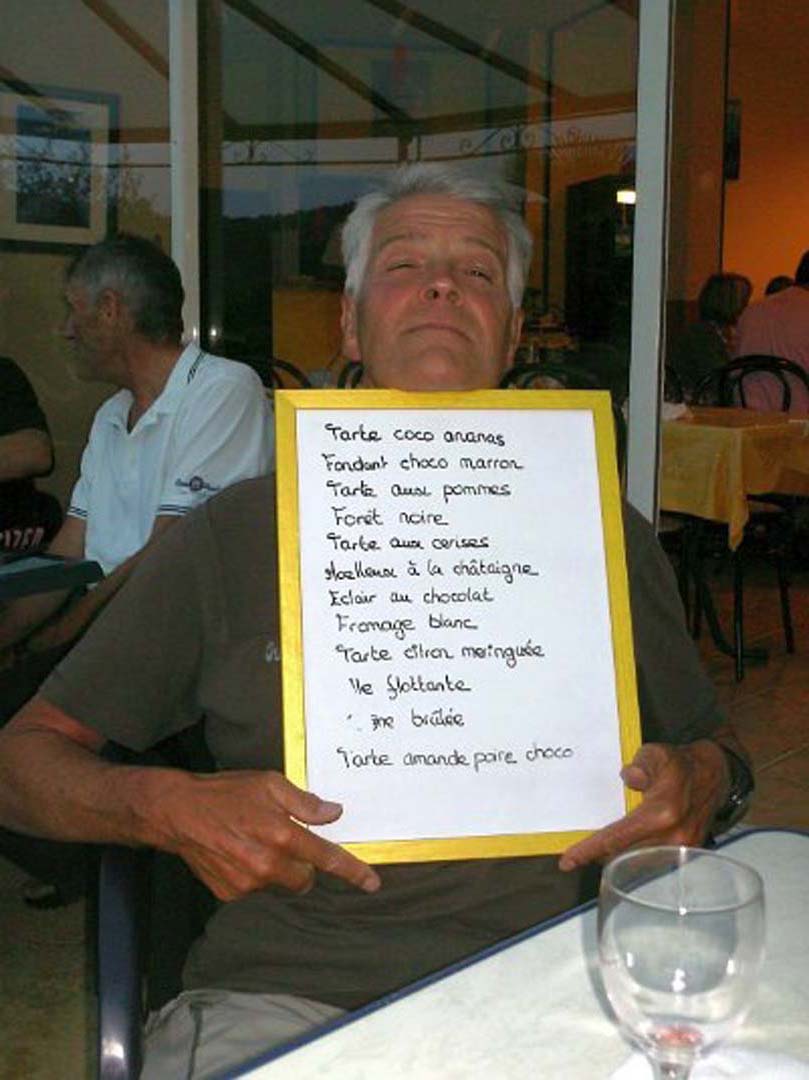 Tarte coco ananas
Fondant choco marron
Tarte aux pommes
Forêt noire
Tarte aux cerises
Moelleux à la châtaigne
Eclair au chocolat
Fromage blanc
Tarte citron meringuée
Ile flottante
brûlée
Tarte amande poire choco